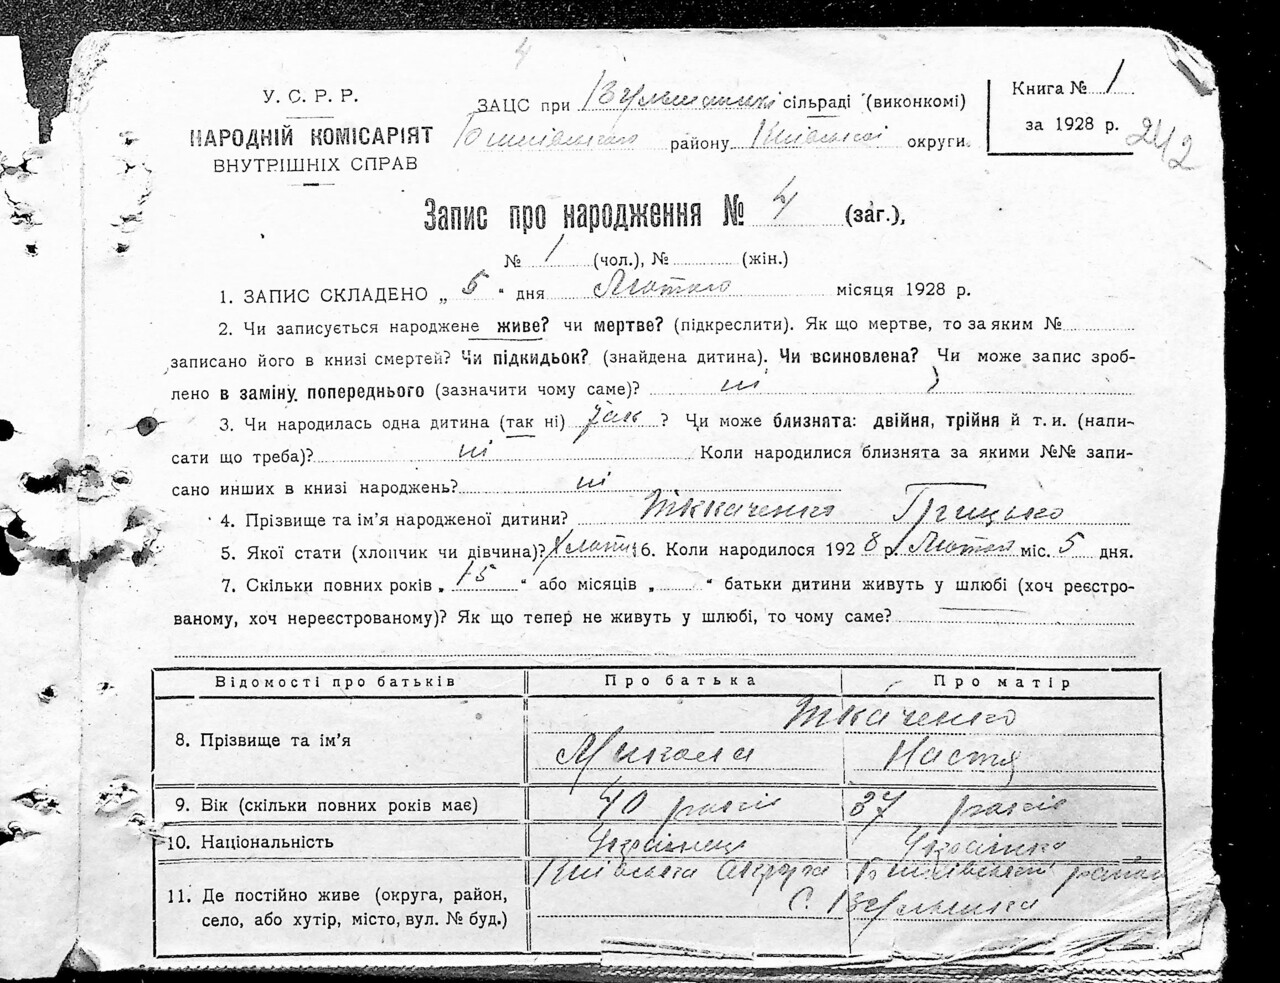 4
У. С. Р. Р.
НАРОДНІЙ КОМІСАРІЯТ
ВНУТРІШНІХ СПРАВ
ЗАЦС при сільраді (виконкомі)
району Київської округи.
Книга № 1
за 1928 р.
242
Запис про народження № 4 (заг.),
№ 1 (чол.), № (жін.)
1. ЗАПИС СКЛАДЕНО „ 5 “ дня Лютого місяця 1928 р.
2. Чи записується народжене живе? чи мертве? (підкреслити). Як що мертве, то за яким №
записано його в книзі смертей? Чи підкидьок? (знайдена дитина). Чи всиновлена? Чи може запис зроб-
лено в заміну попереднього (зазначити чому саме)? ні
3. Чи народилась одна дитина (так ні) так ? Чи може близнята: двійня, трійня й т. и. (напи-
сати що треба)? ні Коли народилися близнята за якими №№ запи-
сано инших в книзі народжень? ні
4. Прізвище та ім’я народженої дитини? Ткаченко Грицько
5. Якої стати (хлопчик чи дівчина)? 6. Коли народилося 1928 р. Лютого міс. 5 дня.
7. Скільки повних років „ 15 “ або місяців „ “ батьки дитини живуть у шлюбі (хоч реєстро-
ваному, хоч нереєстрованому)? Як що тепер не живуть у шлюбі, то чому саме?
Відомості про батьків Про батька Про матір
Ткаченко
8. Прізвище та ім’я Микола Настя
9. Вік (скільки повних років має) 40 років 37 років
10. Національність Українець Українка
11. Де постійно живе (округа, район,
село, або хутір, місто, вул. № буд.)
Київська округа район
с.